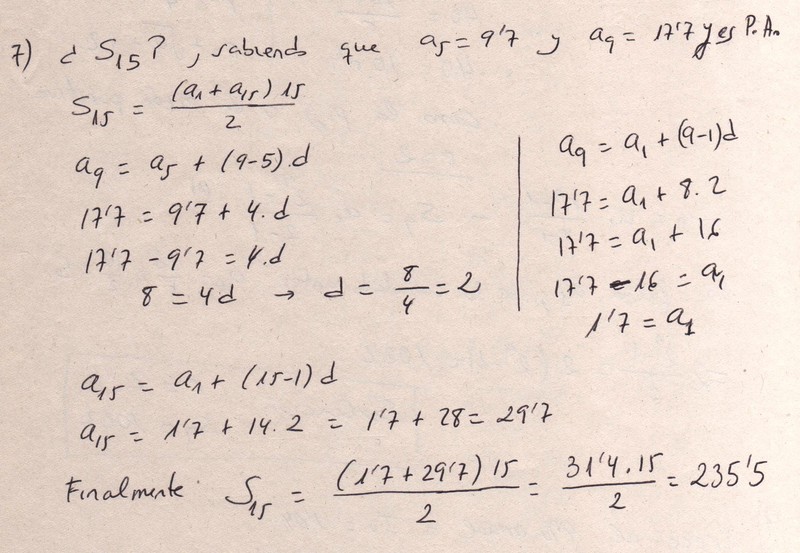 7) ¿ S₁₅? , sabiendo que a₅ = 9'7 y a₉ = 17'7 y es P.A.
S₁₅ = (a₁ + a₁₅) 15 / 2
a₉ = a₅ + (9-5).d
17'7 = 9'7 + 4.d
17'7 - 9'7 = 4.d
8 = 4d → d = 8/4 = 2
a₉ = a₁ + (9-1)d
17'7 = a₁ + 8.2
17'7 = a₁ + 16
17'7 - 16 = a₁
1'7 = a₁
a₁₅ = a₁ + (15-1)d
a₁₅ = 1'7 + 14.2 = 1'7 + 28 = 29'7
Finalmente: S₁₅ = (1'7 + 29'7) 15 / 2 = 31'4.15 / 2 = 235'5